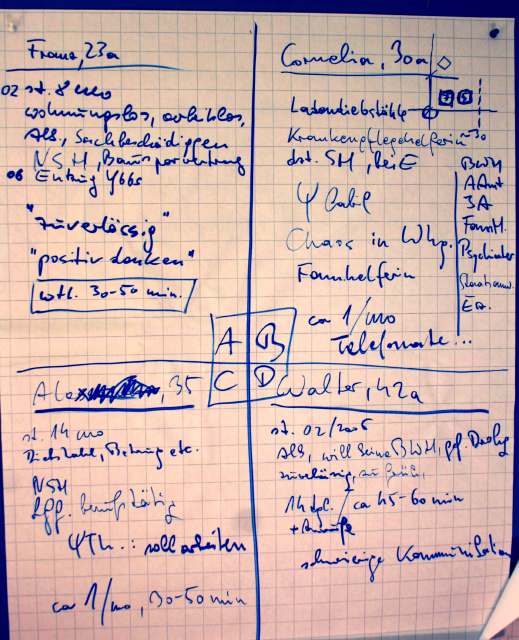 Franz, 23a
02 st. 8 mo
wohnungslos, arbeitslos,
Als, Sachbeschädigungen
NSH, Bausparvertrag
06 Entzug Ybbs
"zuverlässig"
"positiv denken"
wtl. 30-50 min.
Cornelia, 30a
Ladendiebstähle
Krankenpflegehelferin
dzt. SH, bei E
Ψ labil
Chaos in Whg.
Famhelferin
ca 1/mo
Telefonate...
BWH
AAmt
JA
FamH.
Psychiater
A B
C D
Alex, 35
st. 14 mo
Diebstahl, Betrug etc.
NSH
ggf. berufstätig
ΨTh.: soll arbeiten
ca 1/mo, 30-50 min
Walter, 42a
st. 02/2005
Als, will seine BWH, ggf.
zuverlässig, zu früh,
14 tgl. / ca 45-60 min
+ Anrufe
schwierige Kommunikation